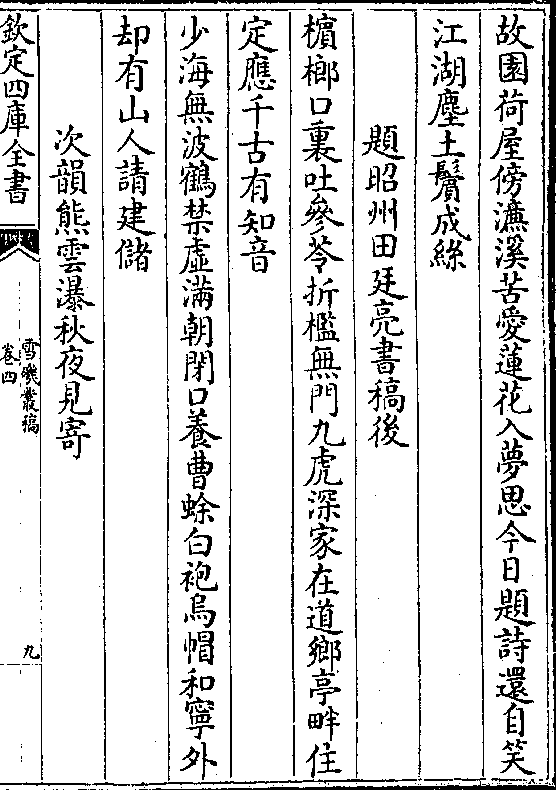 故園荷屋傍濓溪苦愛蓮花入夢思今日題詩還自笑
江湖塵土鬢成絲
題昭州田廷亮書稿後
檳榔口裏吐參苓折檻無門九虎深家在道鄉亭畔住
定應千古有知音
少海無波鶴禁虛滿朝閉口養曹蜍白袍烏帽和寧外
却有山人請建儲
次韻熊雲瀑秋夜見寄
欽定四庫全書
雪磯叢稿
卷四
九